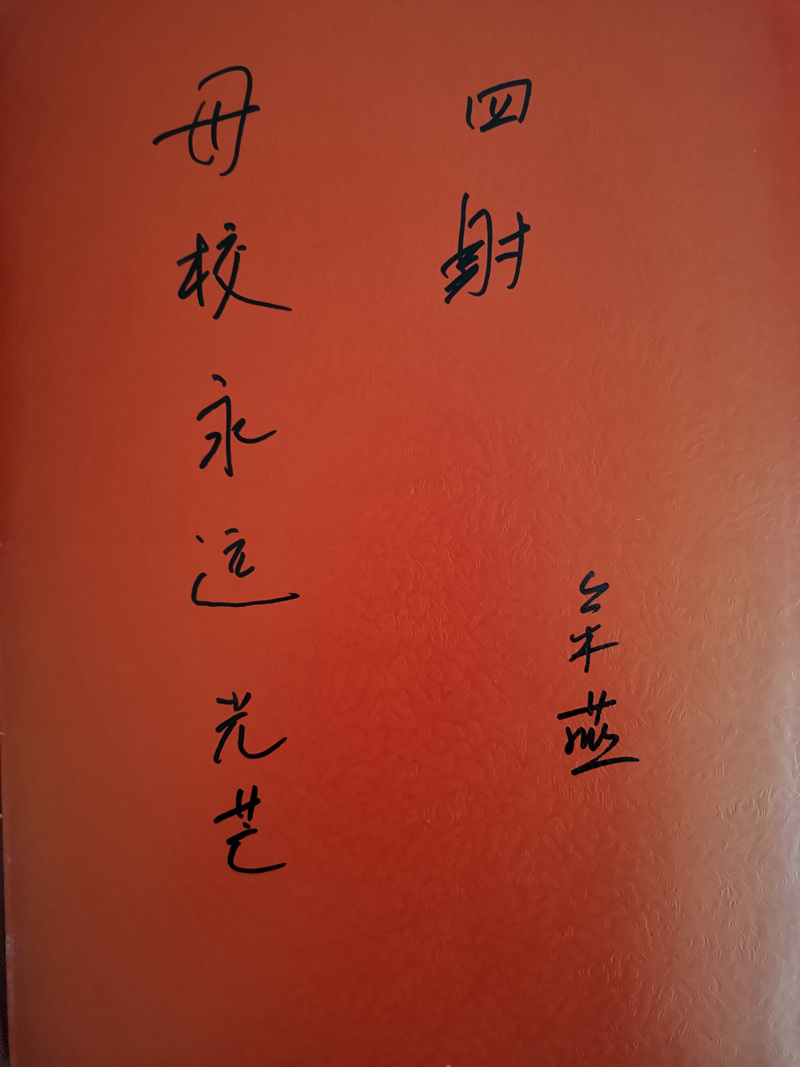 母校永远光芒
四射